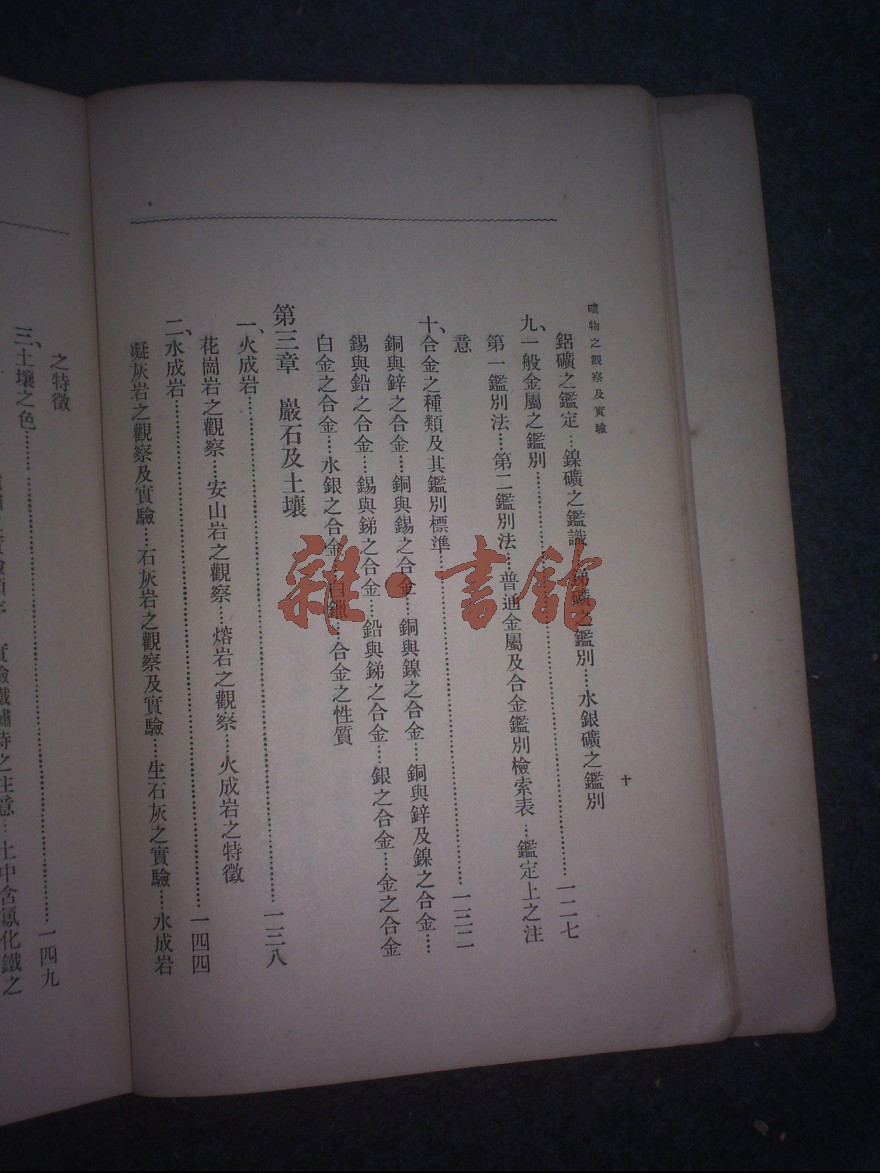 礦物之觀察及實驗
十
鋁礦之鑑定…鎳礦之鑑識…銻礦之鑑別…水銀礦之鑑別
九、一般金屬之鑑別……一二七
第一鑑別法…第二鑑別法…普通金屬及合金鑑別檢索表…鑑定上之注
意
十、合金之種類及其鑑別標準……一三二
銅與鋅之合金…銅與錫之合金…銅與鎳之合金…銅與鋅及鎳之合金…
錫與鉛之合金…錫與銻之合金…鉛與銻之合金…銀之合金…金之合金
白金之合金…水銀之合金…白鑞…合金之性質
第三章 巖石及土壤
一、火成岩……一三八
花崗岩之觀察…安山岩之觀察…熔岩之觀察…火成岩之特徵
二、水成岩……一四四
凝灰岩之觀察及實驗…石灰岩之觀察及實驗…生石灰之實驗…水成岩
之特徵
三、土壤之色……一四九
實驗鐵鏽時之注意…土中含氯化鐵之
雜·書館